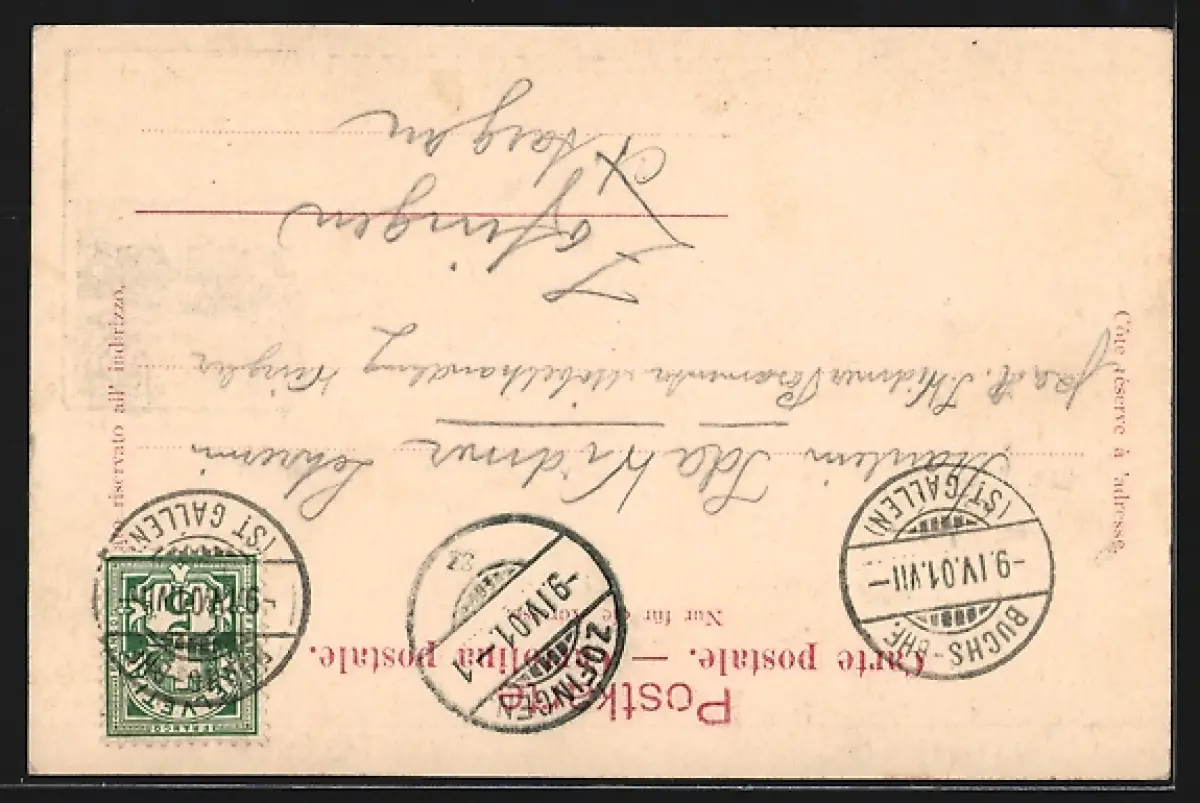 Postkarte
Carte postale. — Cartolina postale.
Nur für die
Côté réservé à l'adresse
Lato riservato all' indirizzo.
BUCHS-BHF.
-9.IV.01.VII-
(ST. GALLEN)
ZOFINGEN
-9.IV.01.-1
BUCHS-BHF.
(ST. GALLEN)
HELVETIA
5
FRANCO
Fräulein Ida Widmer Lehrerin
Widmer Möbelhandlung
Zofingen
Aargau